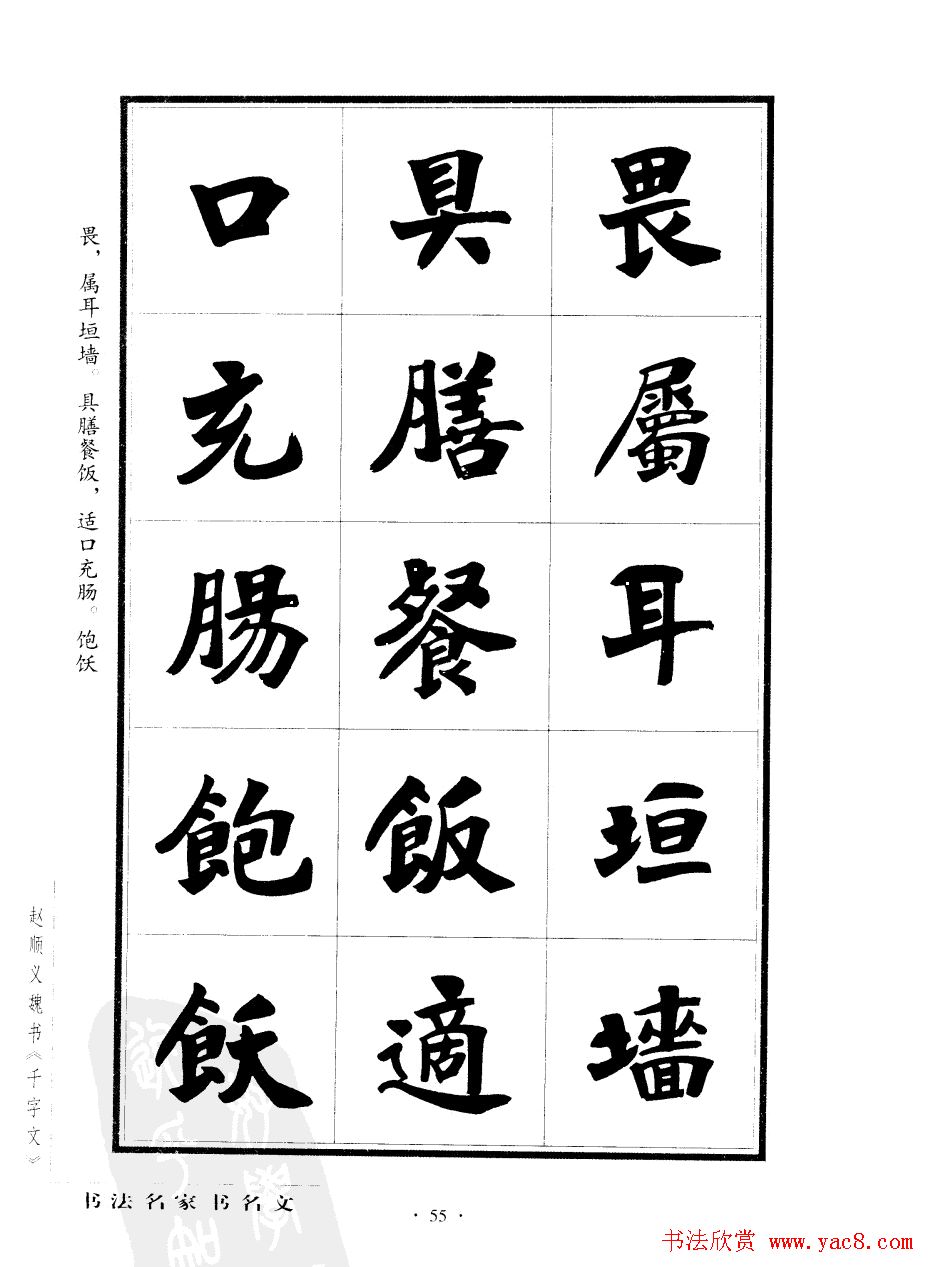 畏屬耳垣墻
具膳餐飯適
口充腸飽飫
畏，属耳垣墙。具膳餐饭，适口充肠。饱饫
赵顺义魏书《千字文》
书法名家书名文
· 55 ·
书法欣赏 www.yac8.com